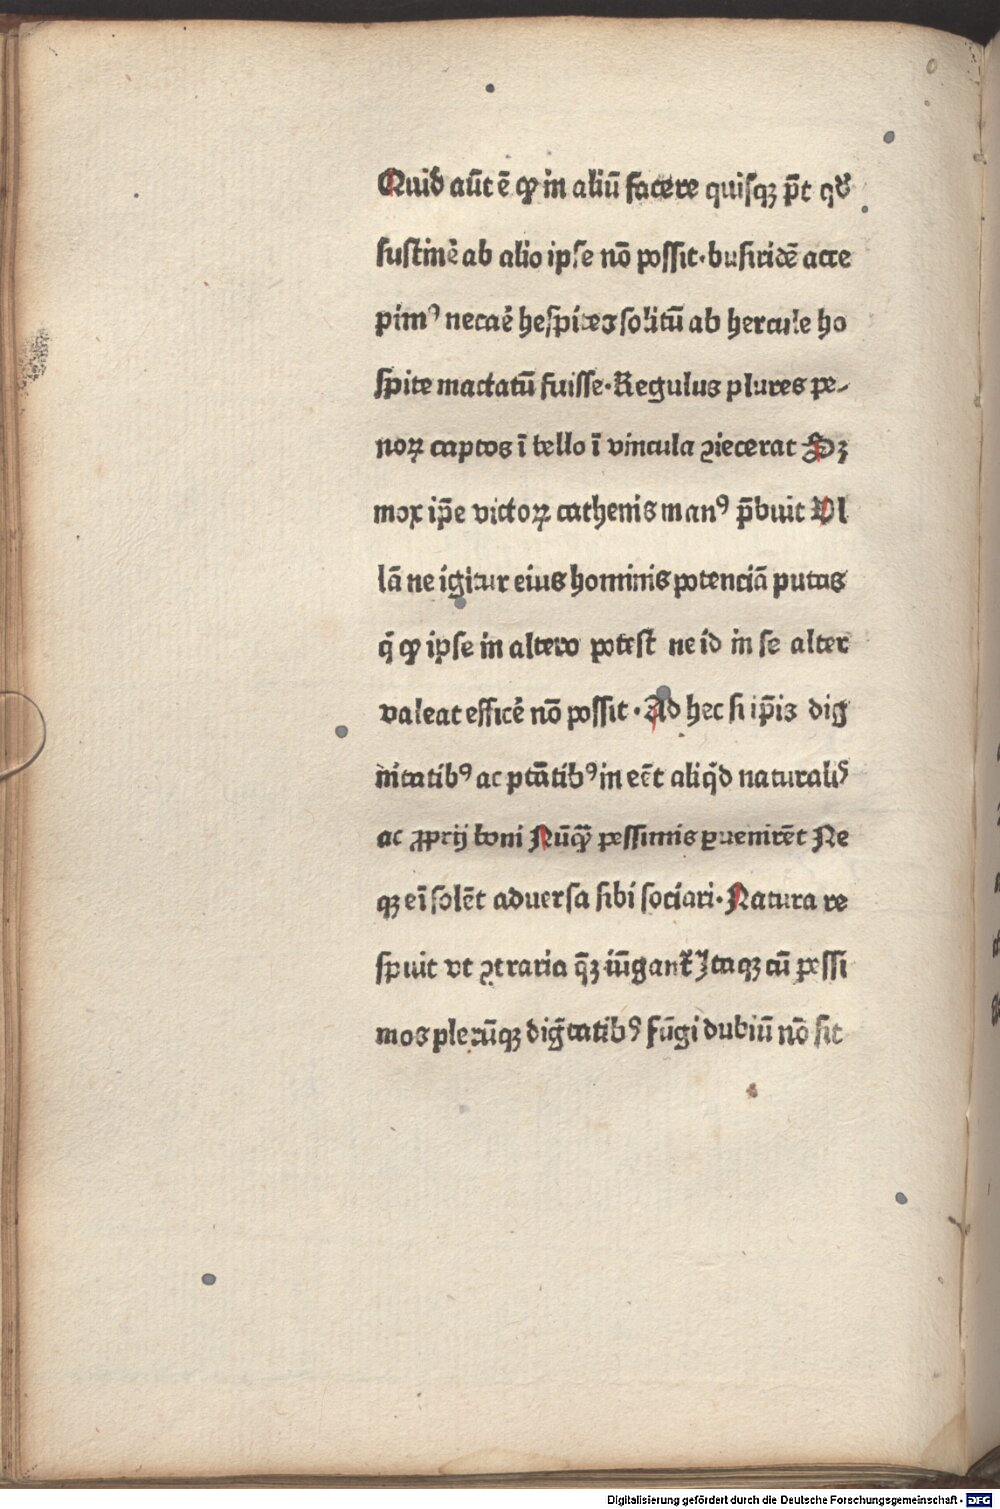 Quid aūt ē ꝙ in aliū facere quisqꝫ p̄t qð
sustinē ab alio ipse nō possit·busiridē acce
pimꝰ necaē hespites solitū ab hercule ho
spite mactatū fuisse·Regulus plures pe-
noꝝ captos ī bello ī vincula ꝯiecerat Sꝫ
mox ip̄e victoꝝ cathenis manꝰ p̄buit Vl
lā ne igitur eius hominis potenciā putas
q̄ ꝙ ipse in altero potest ne id in se alter
valeat efficē nō possit·Ad hec si ip̄is dig
nitatibꝰ ac ptātibꝰ in eēt aliq̄d naturalis
ac ꝓprij boni Nūqꝫ pessimis ꝑuenirēt Ne
qꝫ eī solēt aduersa sibi sociari·Natura re
spuit vt ꝯtraria q̄ꝫ iūgant᷑ Itaqꝫ cū pessi
mos plerūqꝫ diḡtatibꝰ fūgi dubiū nō sit
Digitalisierung gefördert durch die Deutsche Forschungsgemeinschaft - DFG